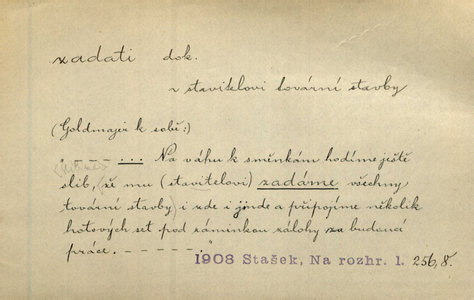 zadati dok.
v stavitelovi tovární stavby
(Goldmajer k sobě:)
" – – – ... Na váhu k směnkám hodíme ještě
slib, (že mu (stavitelovi) zadáme všechny
tovární stavby) i zde i jinde a připojíme několik
hotových set pod záminkou zálohy za budoucí
práce. – – – – – ."
1908 Stašek, Na rozhr. 1. 256, 8.